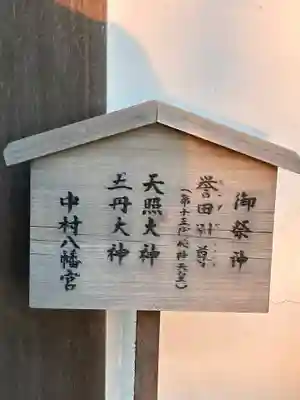 御祭神
誉田別尊
(第十五代応神天皇)
天照大神
三丹大神
中村八幡宮